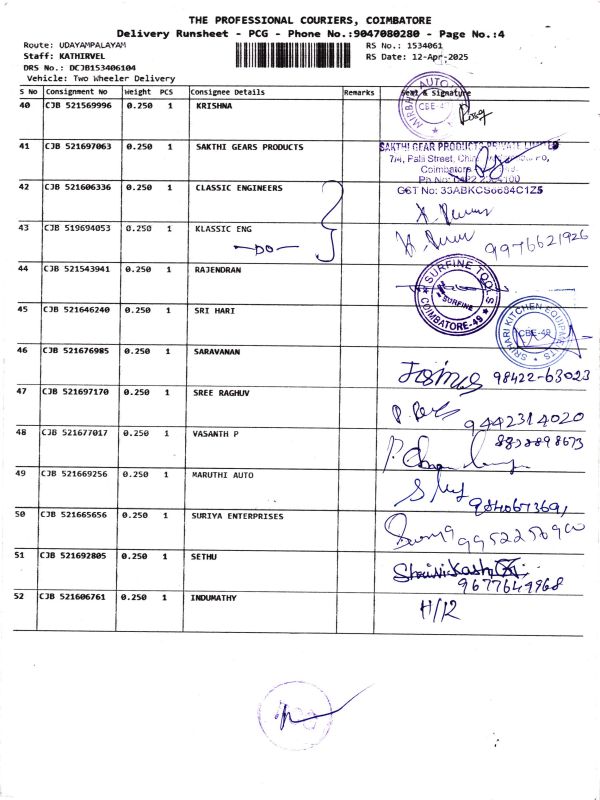 THE PROFESSIONAL COURIERS, COIMBATORE
Delivery Runsheet - PCG - Phone No.:9047080280 - Page No.:4
Route: UDAYAMPALAYAM
RS No.: 1534061
Staff: KATHIRVEL
RS Date: 12-Apr-2025
DRS No.: DCJB1534061O4
Vehicle: Two Wheeler Delivery
S No Consignment No Weight PCS Consignee Details Remarks Seal & Signature
40 CJB 521569996 0.250 1 KRISHNA
CBE-4
41 CJB 521697063 0.250 1 SAKTHI GEARS PRODUCTS
SAKTHI GEAR PRODUCTS PRIVATE LIMITED
Coimbatore
GST No: 33ABKCS6684C1Z5
42 CJB 521606336 0.250 1 CLASSIC ENGINEERS
43 CJB 519694053 0.250 1 KLASSIC ENG
—DO—
9976621926
44 CJB 521543941 0.250 1 RAJENDRAN
SURFINE TOOLS
SURFINE
COIMBATORE-49
45 CJB 521646240 0.250 1 SRI HARI
SRI HARI KITCHEN EQUIPMENTS
CBE-49
46 CJB 521676985 0.250 1 SARAVANAN
98422-63023
47 CJB 521697170 0.250 1 SREE RAGHUV
9442314020
48 CJB 521677017 0.250 1 VASANTH P
49 CJB 521669256 0.250 1 MARUTHI AUTO
50 CJB 521665656 0.250 1 SURIYA ENTERPRISES
51 CJB 521692805 0.250 1 SETHU
9677649968
52 CJB 521606761 0.250 1 INDUMATHY
H/R